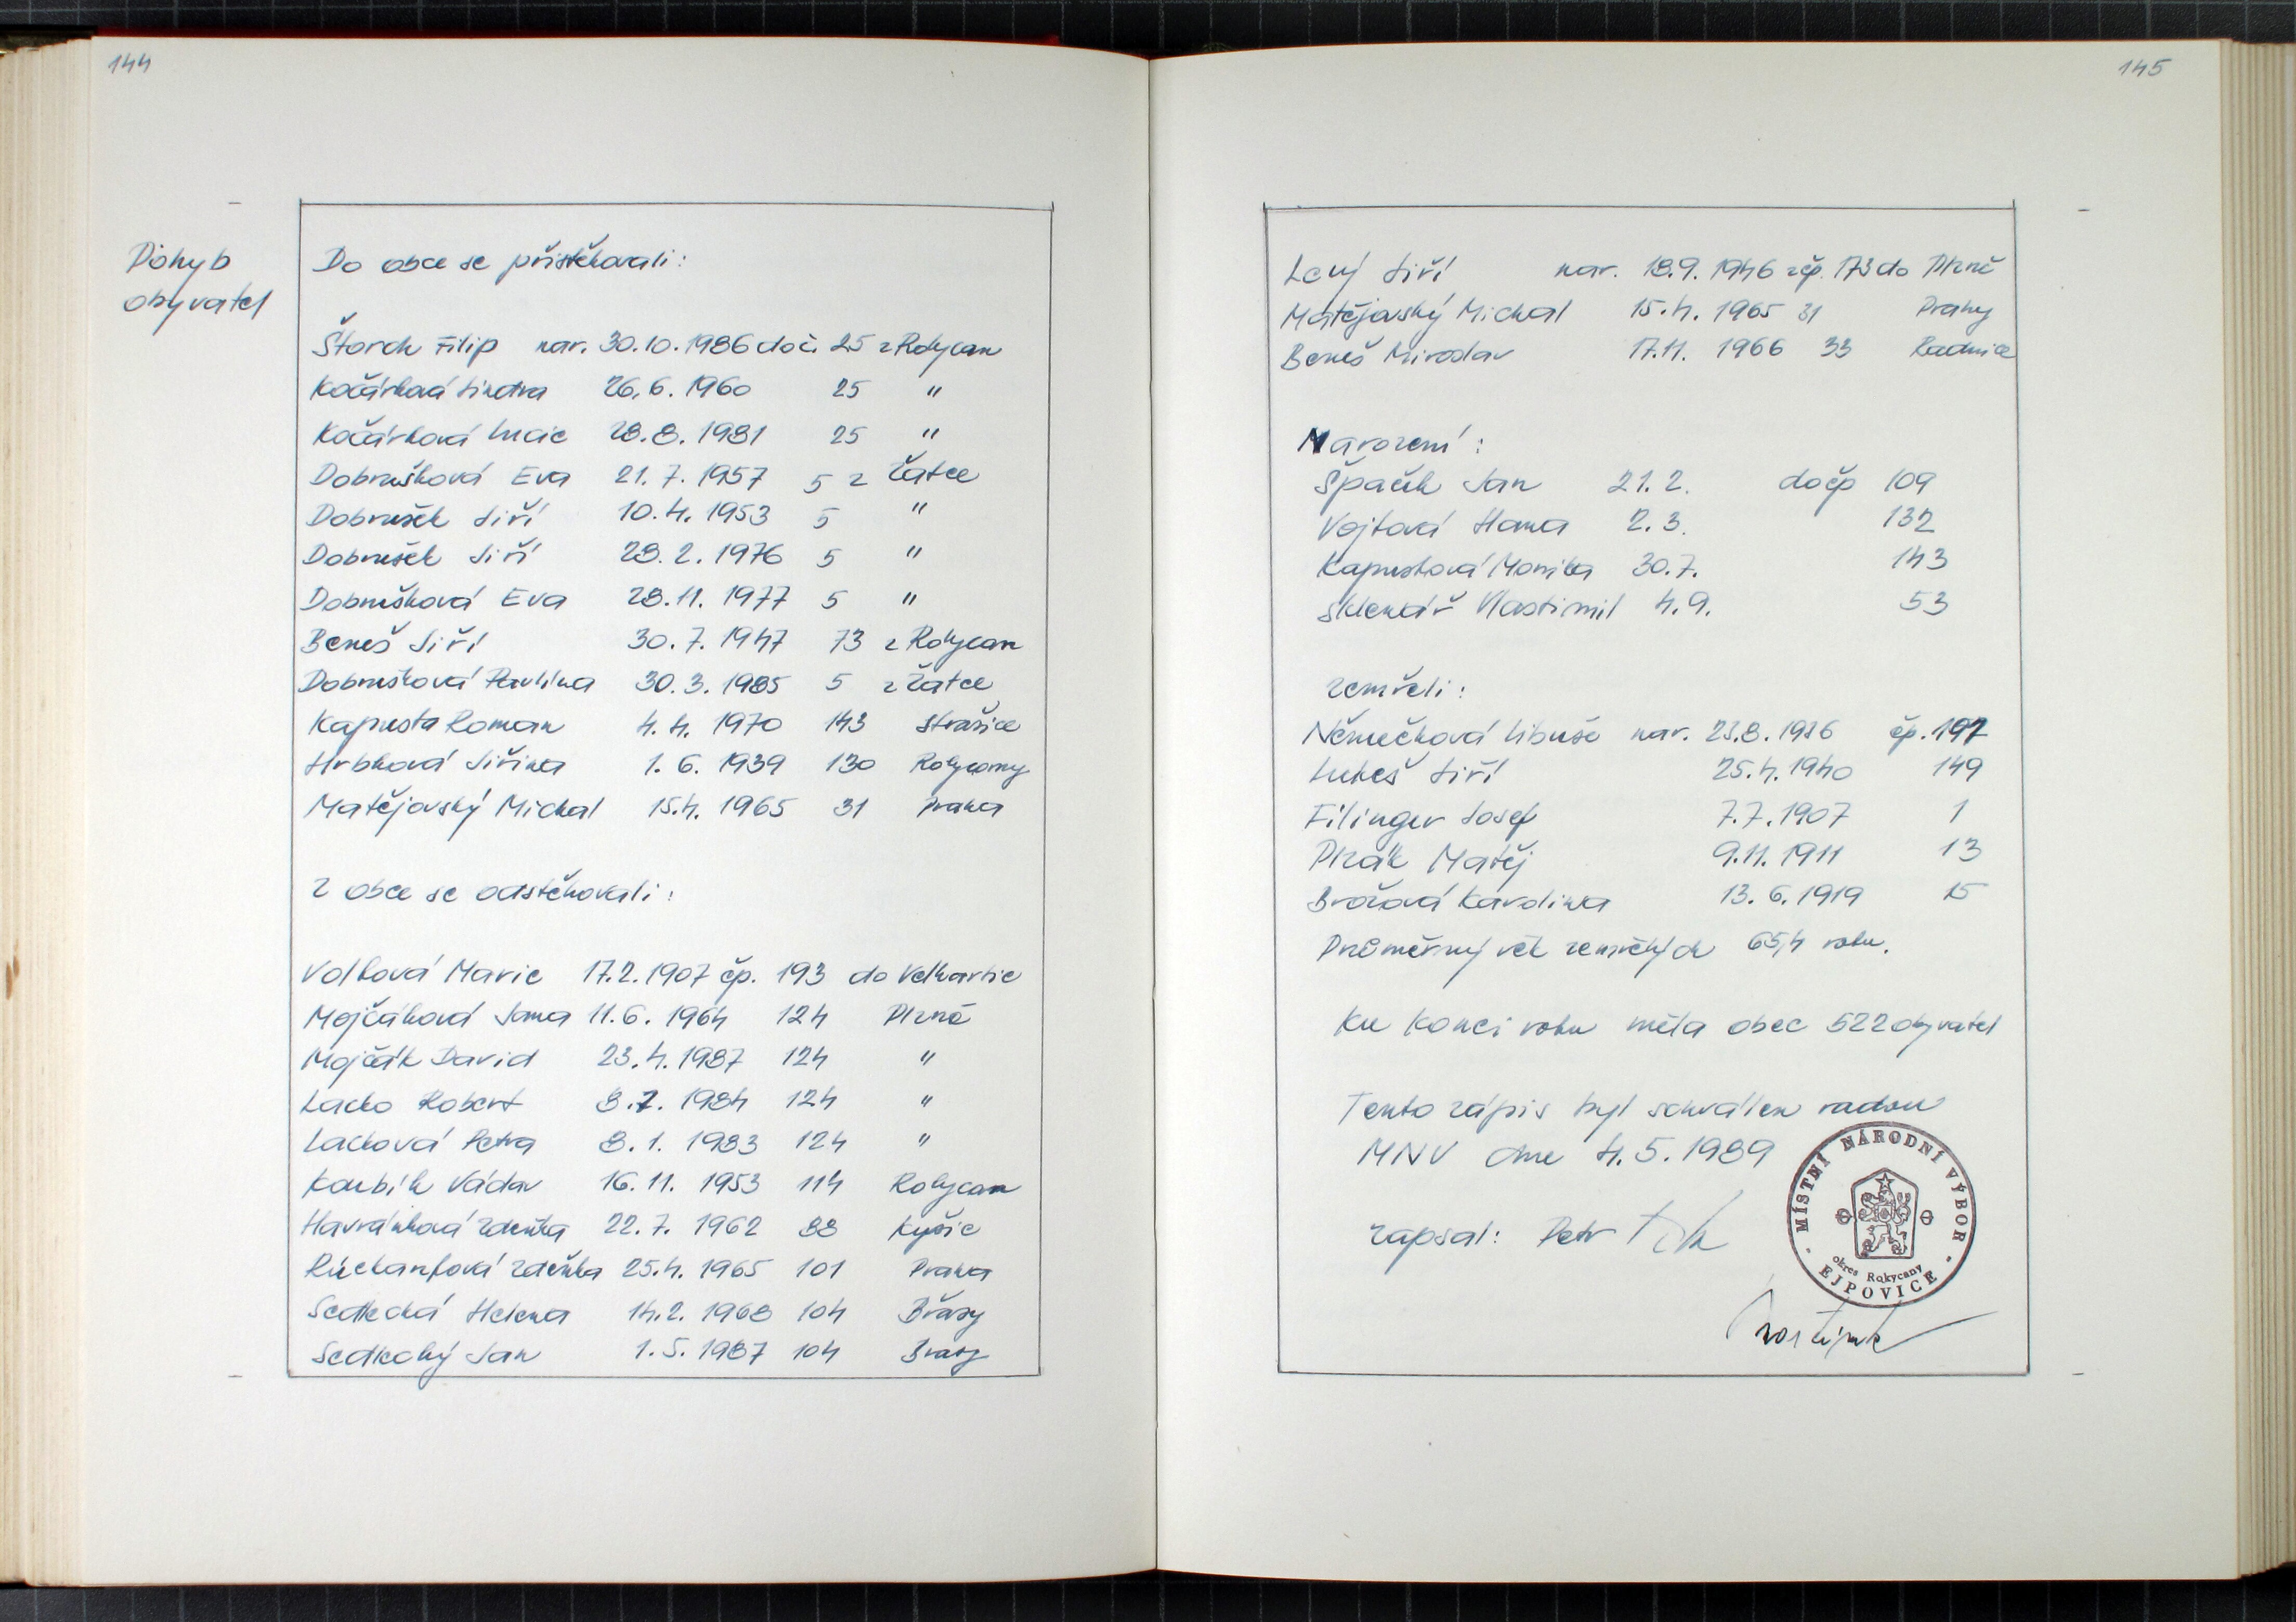 144
Pohyb
obyvatel
Do obce se přistěhovali:
Štorch Filip nar. 30.10.1986 do č. 25 z Rokycan
Kočárková Jindra 26.6.1960 25 "
Kočárková Lucie 28.8.1981 25 "
Dobrušková Eva 21.7.1957 5 z Žatce
Dobrušek Jiří 10.4.1953 5 "
Dobrušek Jiří 28.2.1976 5 "
Dobrušková Eva 28.11.1977 5 "
Beneš Jiří 30.7.1947 73 z Rokycan
Dobrušková Pavlína 30.3.1985 5 z Žatce
Kapusta Roman 4.4.1970 143 Strašice
Hrbková Jiřina 1.6.1939 130 Rokycany
Matějovský Michal 15.4.1965 31 Praha
Z obce se odstěhovali:
Volková Marie 17.2.1907 čp. 193 do Velhartic
Mojčáková Jana 11.6.1964 124 Plzně
Mojčák David 23.4.1987 124 "
Lacko Robert 8.7.1984 124 "
Lacková Petra 8.1.1983 124 "
Koubík Václav 16.11.1953 114 Rokycan
Havránková Zdeňka 22.7.1962 88 Kyšic
Zdeňka 25.4.1965 101 Praha
Sedlecká Helena 14.2.1968 104 Břasy
Sedlecký Jan 1.5.1987 104 Břasy
145
Levý Jiří nar. 18.9.1946 z čp. 173 do Plzně
Matějovský Michal 15.4.1965 31 Prahy
Beneš Miroslav 17.11.1966 33 Radnice
Narození:
Špaček Jan 21.2. do čp 109
Vojtová Hana 2.3. 132
Kapustová Monika 30.7. 143
Sklenář Vlastimil 4.9. 53
Zemřeli:
Němečková Libuše nar. 23.8.1936 čp. 197
Lukeš Jiří 25.4.1940 149
Filinger Josef 7.7.1907 1
Plzák Matěj 9.11.1911 13
Brožová Karolina 13.6.1919 15
Průměrný věk zemřelých 65,4 roku.
Ku konci roku měla obec 522 obyvatel
Tento zápis byl schválen radou
MNV dne 4.5.1989
MÍSTNÍ NÁRODNÍ VÝBOR
okres Rokycany
EJPOVICE
zapsal: Petr